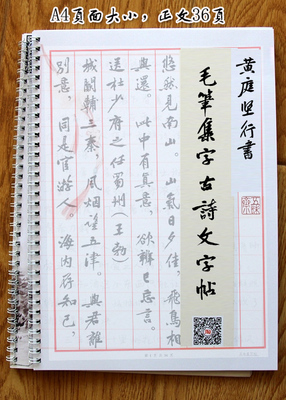 A4頁面大小，正文36頁
黄庭坚行書
毛筆集字古詩文字帖
悠然見南山。山氣日夕佳，飛鳥相
與還。此中有真意，欲辨已忘言。
送杜少府之任蜀州（王勃）
城闕輔三秦，風烟望五津。與君離
別意，同是宦游人。海内存知己，